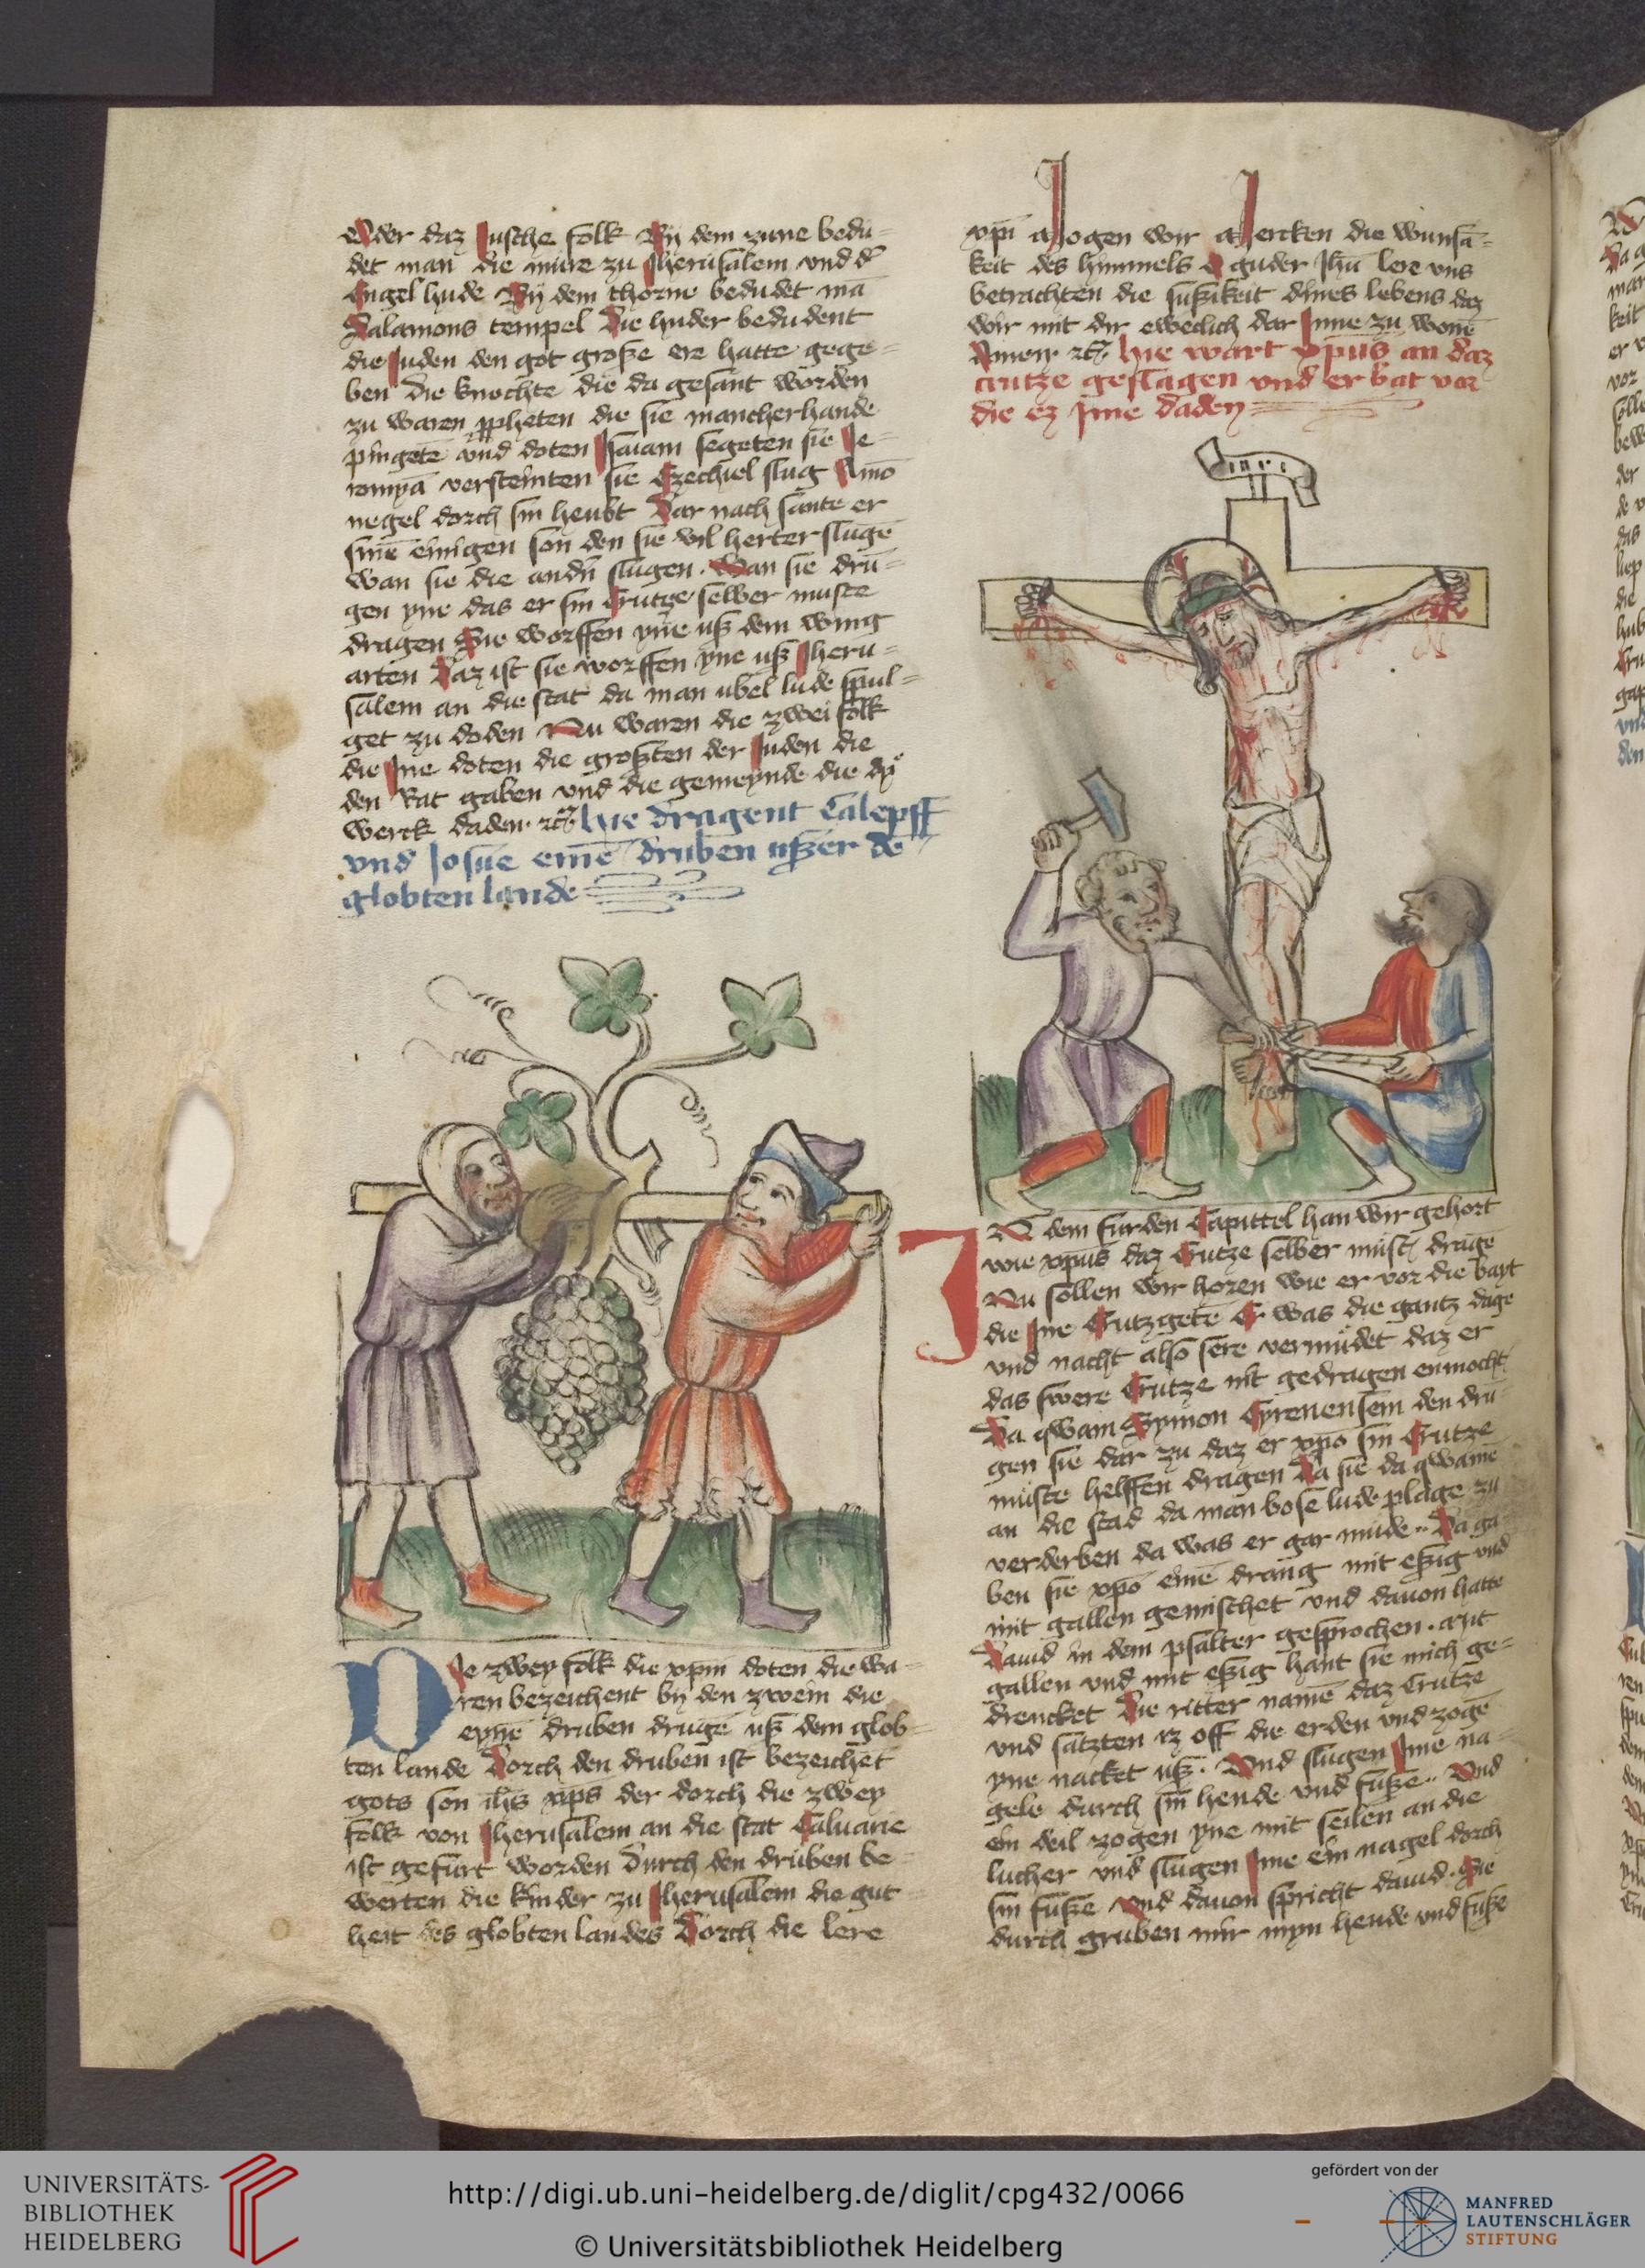 oder daz Jusche folk By dem zune bedu-
det man die mure zu Jherusalem und d
Engel hude By dem thorne bedudet ma
Salamons tempel Die huder bedudent
die Juden den got große ere hatte gege-
ben Die knechte die da gesant worden
zu waren ppheten die sie mancherhande
pingete und doten Jsaiam segeten sie Je-
versteinten sie Ezechiel slug
negel dorch sin heubt Dar nach sante er
sine einigen son den sie vil herter sluge
wan sie die andn slugen. Wan sie dru-
gen yne das er sin Crutze selber muste
dragen Sie worffen yne uß dem wing
arten Daz ist sie worffen yne uß Jheru-
salem an die stat da man ubel lude spul-
get zu doden Nu waren die zwei folk
die Jne doten die großten der Juden die
den Rat gaben und die gemeynde die dz
werck daden. Hie dragent Calepff
und Josue eine druben ußer de
globten lande
Die zwey folk die xpm doten die wa-
ren bezeichent by den zwein die
eyne druben druge uß dem glob-
ten lande Dorch den druben ist bezeichet
gots son ihs xps der dorch die zwey
folk von Jherusalem an die stat Caluarie
ist gefurt worden Durch den druben be-
werten die kinder zu Jherusalem die gut
heit des globten landes Dorch die lere
xpi Mogen wir Mercken die wunsa-
keit des himmels O guder Jhu lere uns
betrachten die sußikeit dines lebens daz
wir mit dir eweclich dar Jnne zu wone
Amen Hie wart xpus an daz
crutze geslagen und er bat vor
die ez Jme daden
JN dem furden Capittel han wir gehort
wie xpus daz Crutze selber must drage
Nu sollen wir horen wie er vor die bayt
die Jne Crutzgete Er was die gantz dage
und nacht also sere vermudet daz er
das swere Crutze nit gedragen enmocht
Da qwam Symon Cyrenensem den dru-
gen sie dar zu daz er xpo sin Crutze
muste helffen dragen Da sie da qwame
an die stad da man bose lude plage zu
verderben da was er gar mude. Da ga
ben sie xpo eine drang mit eßig und
mit gallen gemischet und dauon hatte
Dauid in dem psalter gesprochen. Mit
gallen und mit eßig hant sie mich ge-
drencket Die ritter name daz Crutze
und satzten iz off die erden und zoge
yne nacket uß. Und slugen Jme na-
gele durch sin hende und fuße. Und
ein deil zogen yne mit seilen an die
lucher und slugen Jme ein nagel dorch
sin fuße Und dauon spricht dauid. Sie
durch gruben mir myn hende und fuße
UNIVERSITÄTS-
BIBLIOTHEK
HEIDELBERG
http://digi.ub.uni-heidelberg.de/diglit/cpg432/0066
© Universitätsbibliothek Heidelberg
gefördert von der
MANFRED
LAUTENSCHLÄGER
STIFTUNG